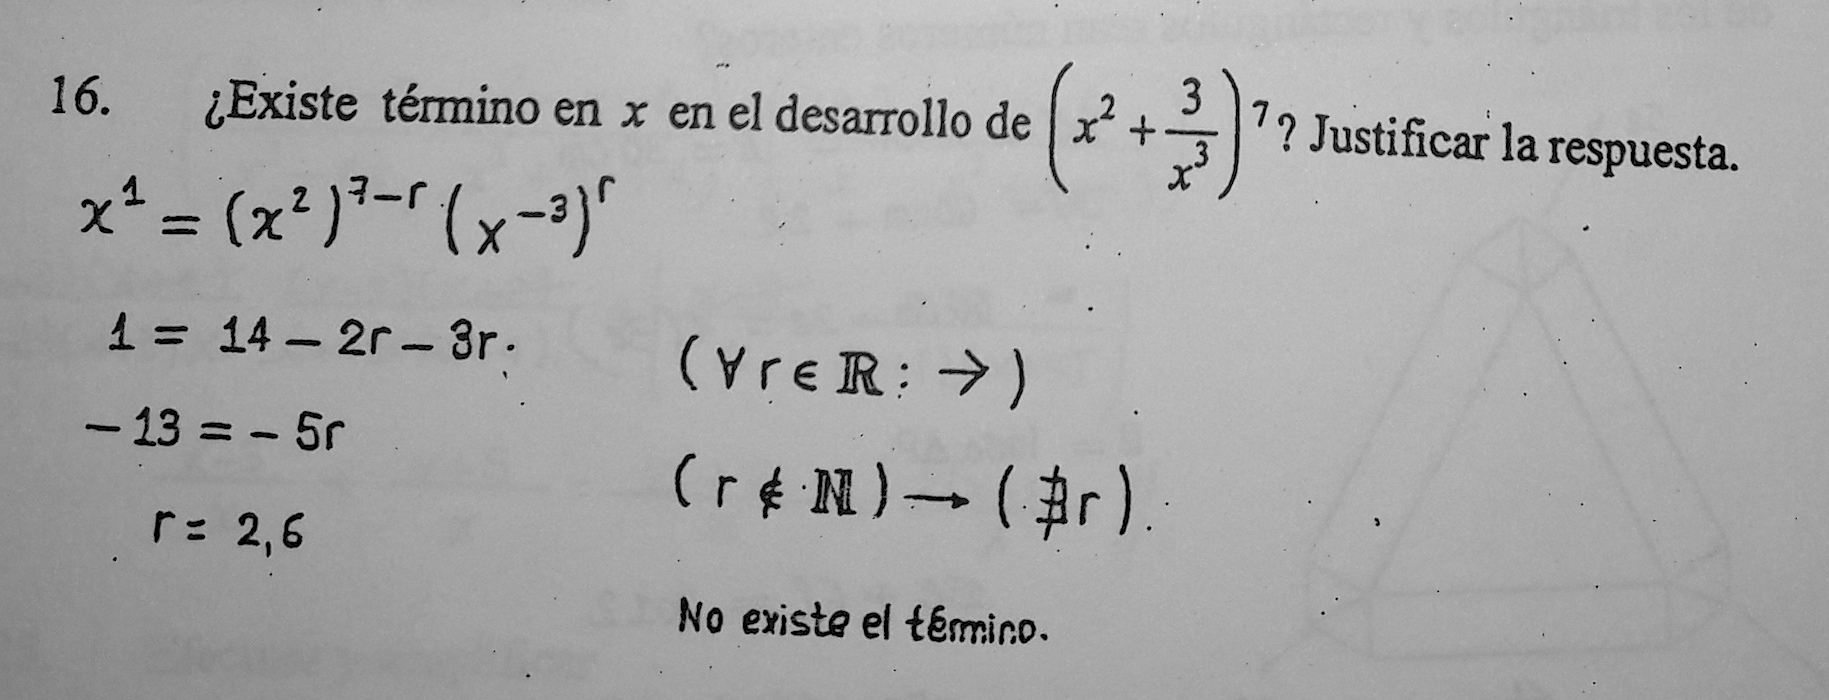 16. ¿Existe término en x en el desarrollo de (x² + 3/x³)⁷? Justificar la respuesta.
x¹ = (x²)⁷⁻ʳ (x⁻³)ʳ
1 = 14 – 2r – 3r.
(∀r∈ℝ: →)
– 13 = – 5r
(r ∉ ℕ) → (∄r).
r = 2,6
No existe el término.